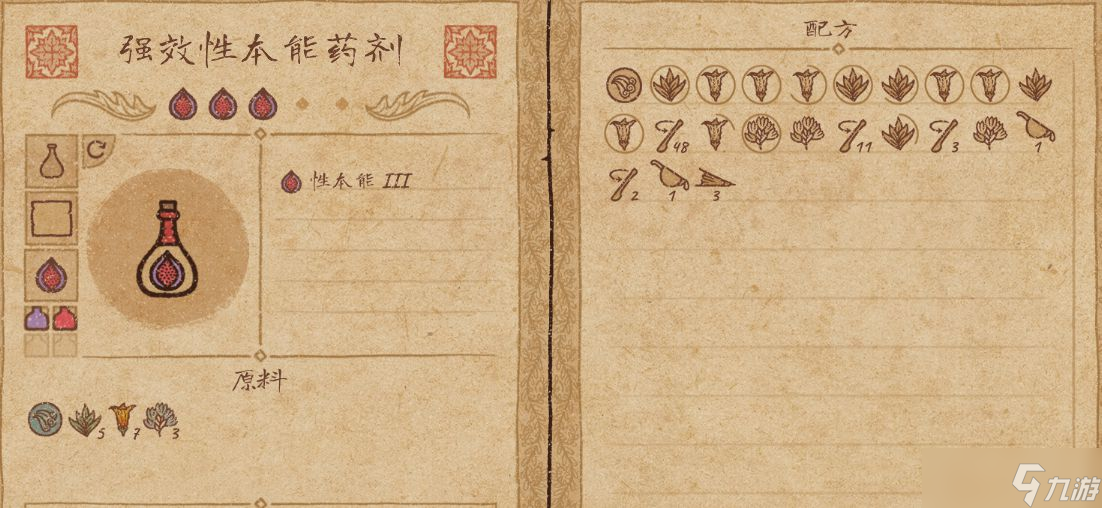 强效性本能药剂
性本能 III
原料
5 7 3
配方
48 11 3 1
2 1 3
九游